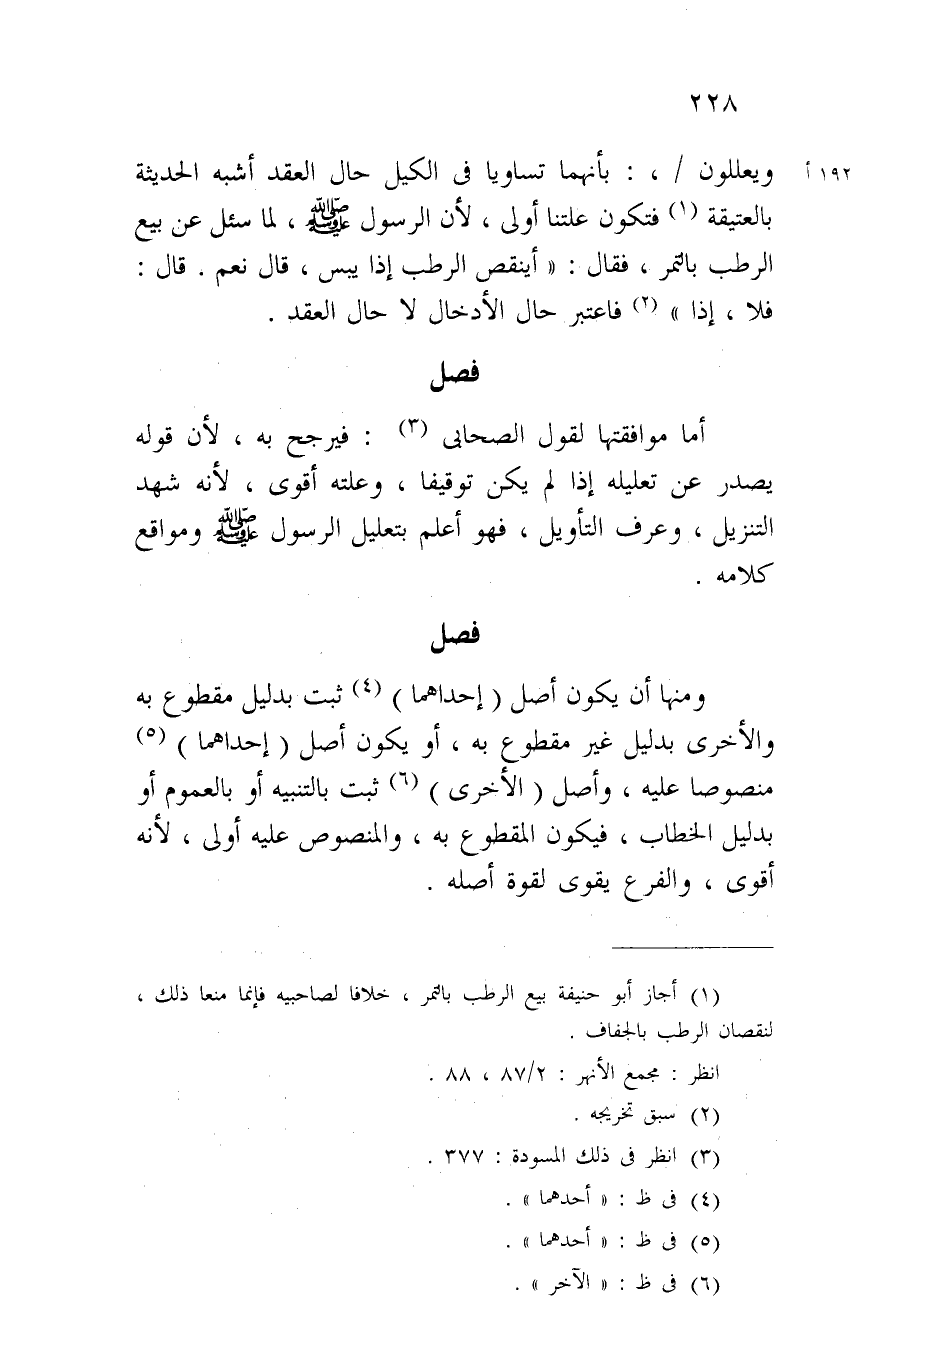 ٢٢٨
١٩٢ أ ويعللون / ، : بأنهما تساويا فى الكيل حال العقد أشبه الحديثة
بالعتيقة (١) فتكون علتنا أولى ، لأن الرسول ﷺ ، لما سئل عن بيع
الرطب بالتمر ، فقال : « أينقص الرطب إذا يبس ، قال نعم . قال :
فلا ، إذا » (٢) فاعتبر حال الأدخال لا حال العقد .
فصل
أما موافقتها لقول الصحابى (٣) : فيرجح به ، لأن قوله
يصدر عن تعليله إذا لم يكن توقيفا ، وعلته أقوى ، لأنه شهد
التنزيل ، وعرف التأويل ، فهو أعلم بتعليل الرسول ﷺ ومواقع
كلامه .
فصل
ومنها أن يكون أصل ( إحداهما ) (٤) ثبت بدليل مقطوع به
والأخرى بدليل غير مقطوع به ، أو يكون أصل ( إحداهما ) (٥)
منصوصا عليه ، وأصل ( الأخرى ) (٦) ثبت بالتنبيه أو بالعموم أو
بدليل الخطاب ، فيكون المقطوع به ، والمنصوص عليه أولى ، لأنه
أقوى ، والفرع يقوى لقوة أصله .
(١) أجاز أبو حنيفة بيع الرطب بالتمر ، خلافا لصاحبيه فإنما منعا ذلك ،
لنقصان الرطب بالجفاف .
انظر : مجمع الأنهر : ٨٧/٢ ، ٨٨ .
(٢) سبق تخريجه .
(٣) انظر فى ذلك المسودة : ٣٧٧ .
(٤) فى ظ : « أحدهما » .
(٥) فى ظ : « أحدهما » .
(٦) فى ظ : « الآخر » .